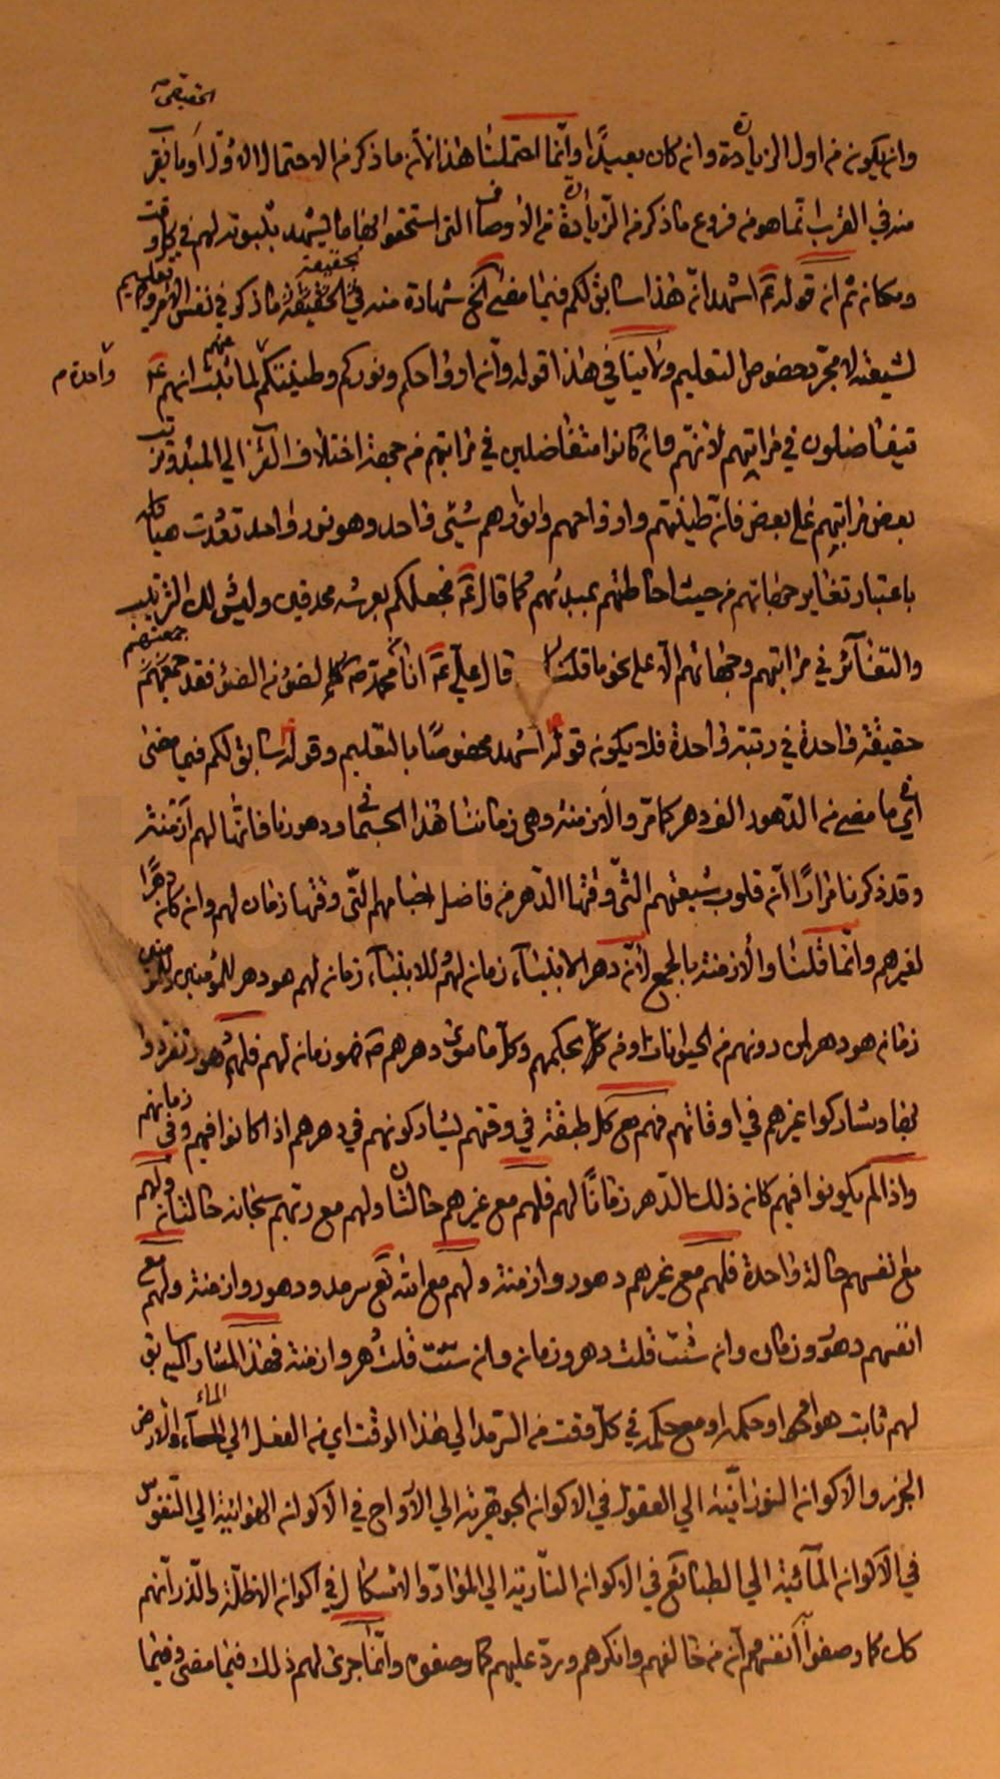 الحقيقي
وان يكون من اول الزيارة وان كان بعيدا وانما احتملنا هذا لان ما ذكر من الاحتمال الاول او ما يقر
منه في القرب انما هو من فروع ما ذكر من الزيارة من الاوصاف التي استحقوا بها ما يشهد بثبوته لهم في كل وقت
ومكان ثم ان قوله عم اشهد ان هذا سابق لكم فيما مضى الخ شهادة منه في الحقيقة بحقيقة ما ذكر في نفس الامر وتعليم
لشيعته لا مجرد خصوص التعليم ولا ينافي هذا قوله وان ارواحكم ونوركم وطينتكم واحدة لما ثبت انهم عم
يتفاضلون في مراتبهم لانهم وان كانوا متفاضلين في مراتبهم من جهة اختلاف القرب الى المبدء وترتب
بعض مراتبهم على بعض فان طينتهم وارواحهم وانوارهم شيء واحد وهو نور واحد تعددت هياكله
باعتبار تغاير جهاتهم من حيث احاطتهم بمبدئهم كما قال عم فجعلكم بعرشه محدقين وليس لك الترتيب
والتغاير في مراتبهم وجهاتهم الا على نحو ما قلنا قال علي عم انا من محمد ص كالضوء من الضوء فقد جمعتهم
حقيقة واحدة في رتبة واحدة فلا يكون قوله اشهد مخصوصا بالتعليم وقوله سابق لكم فيما مضى
اي في ما مضى من الدهور الف دهر كما مر والازمنة وهي زماننا هذا الجسماني ودهورنا فانها لهم ازمنة
وقد ذكرنا مرارا ان قلوب شيعتهم التي وقتها الدهر من فاضل اجسامهم التي وقتها زمان لهم وان كان دهرا
لغيرهم وانما قلنا والازمنة بالجمع لان دهر الانبياء زمان لهم وللانبياء زمان لهم هو دهر للمؤمنين وللمؤمنين
زمان هو دهر لمن دونهم من الحيوانات او من كل بحكمهم وكل ما سوى دهرهم ص فهو زمان لهم فلهم دهور تفردوا
بها وشاركوا غيرهم في اوقاتهم فهم مع كل طبقة في وقتهم يشاركونهم في دهرهم اذا كانوا فيهم وفي زمانهم
واذا لم يكونوا فيهم كان ذلك الدهر زمانا لهم فلهم مع غيرهم حالتان ولهم مع ربهم سبحانه حالتان ولهم
مع نفسهم حالة واحدة فلهم مع غيرهم دهور وازمنة ولهم مع الله تع سرمد ودهور وازمنة ولهم مع
انفسهم دهور وزمان وان شئت قلت دهر وزمان وان شئت قلت دهر وازمنة فهذا المشار اليه سابق
لهم ثابت هو او حكمه او مع حكمه في كل وقت من السرمد الى هذا الوقت اي من الفعل الى الماء والارض
الجرز والاكوان النورانية الى العقول في الاكوان الجوهرية الى الارواح في الاكوان الهوائية الى النفوس
في الاكوان المائية الى الطبائع في الاكوان النارية الى المواد والاشكال في اكوان الاظلة والذر انهم
كل كما وصفوا انفسهم ان من خالفهم وانكرهم ورد عليهم كما وصفوه وانما جرى لهم ذلك فيما مضى وفيما